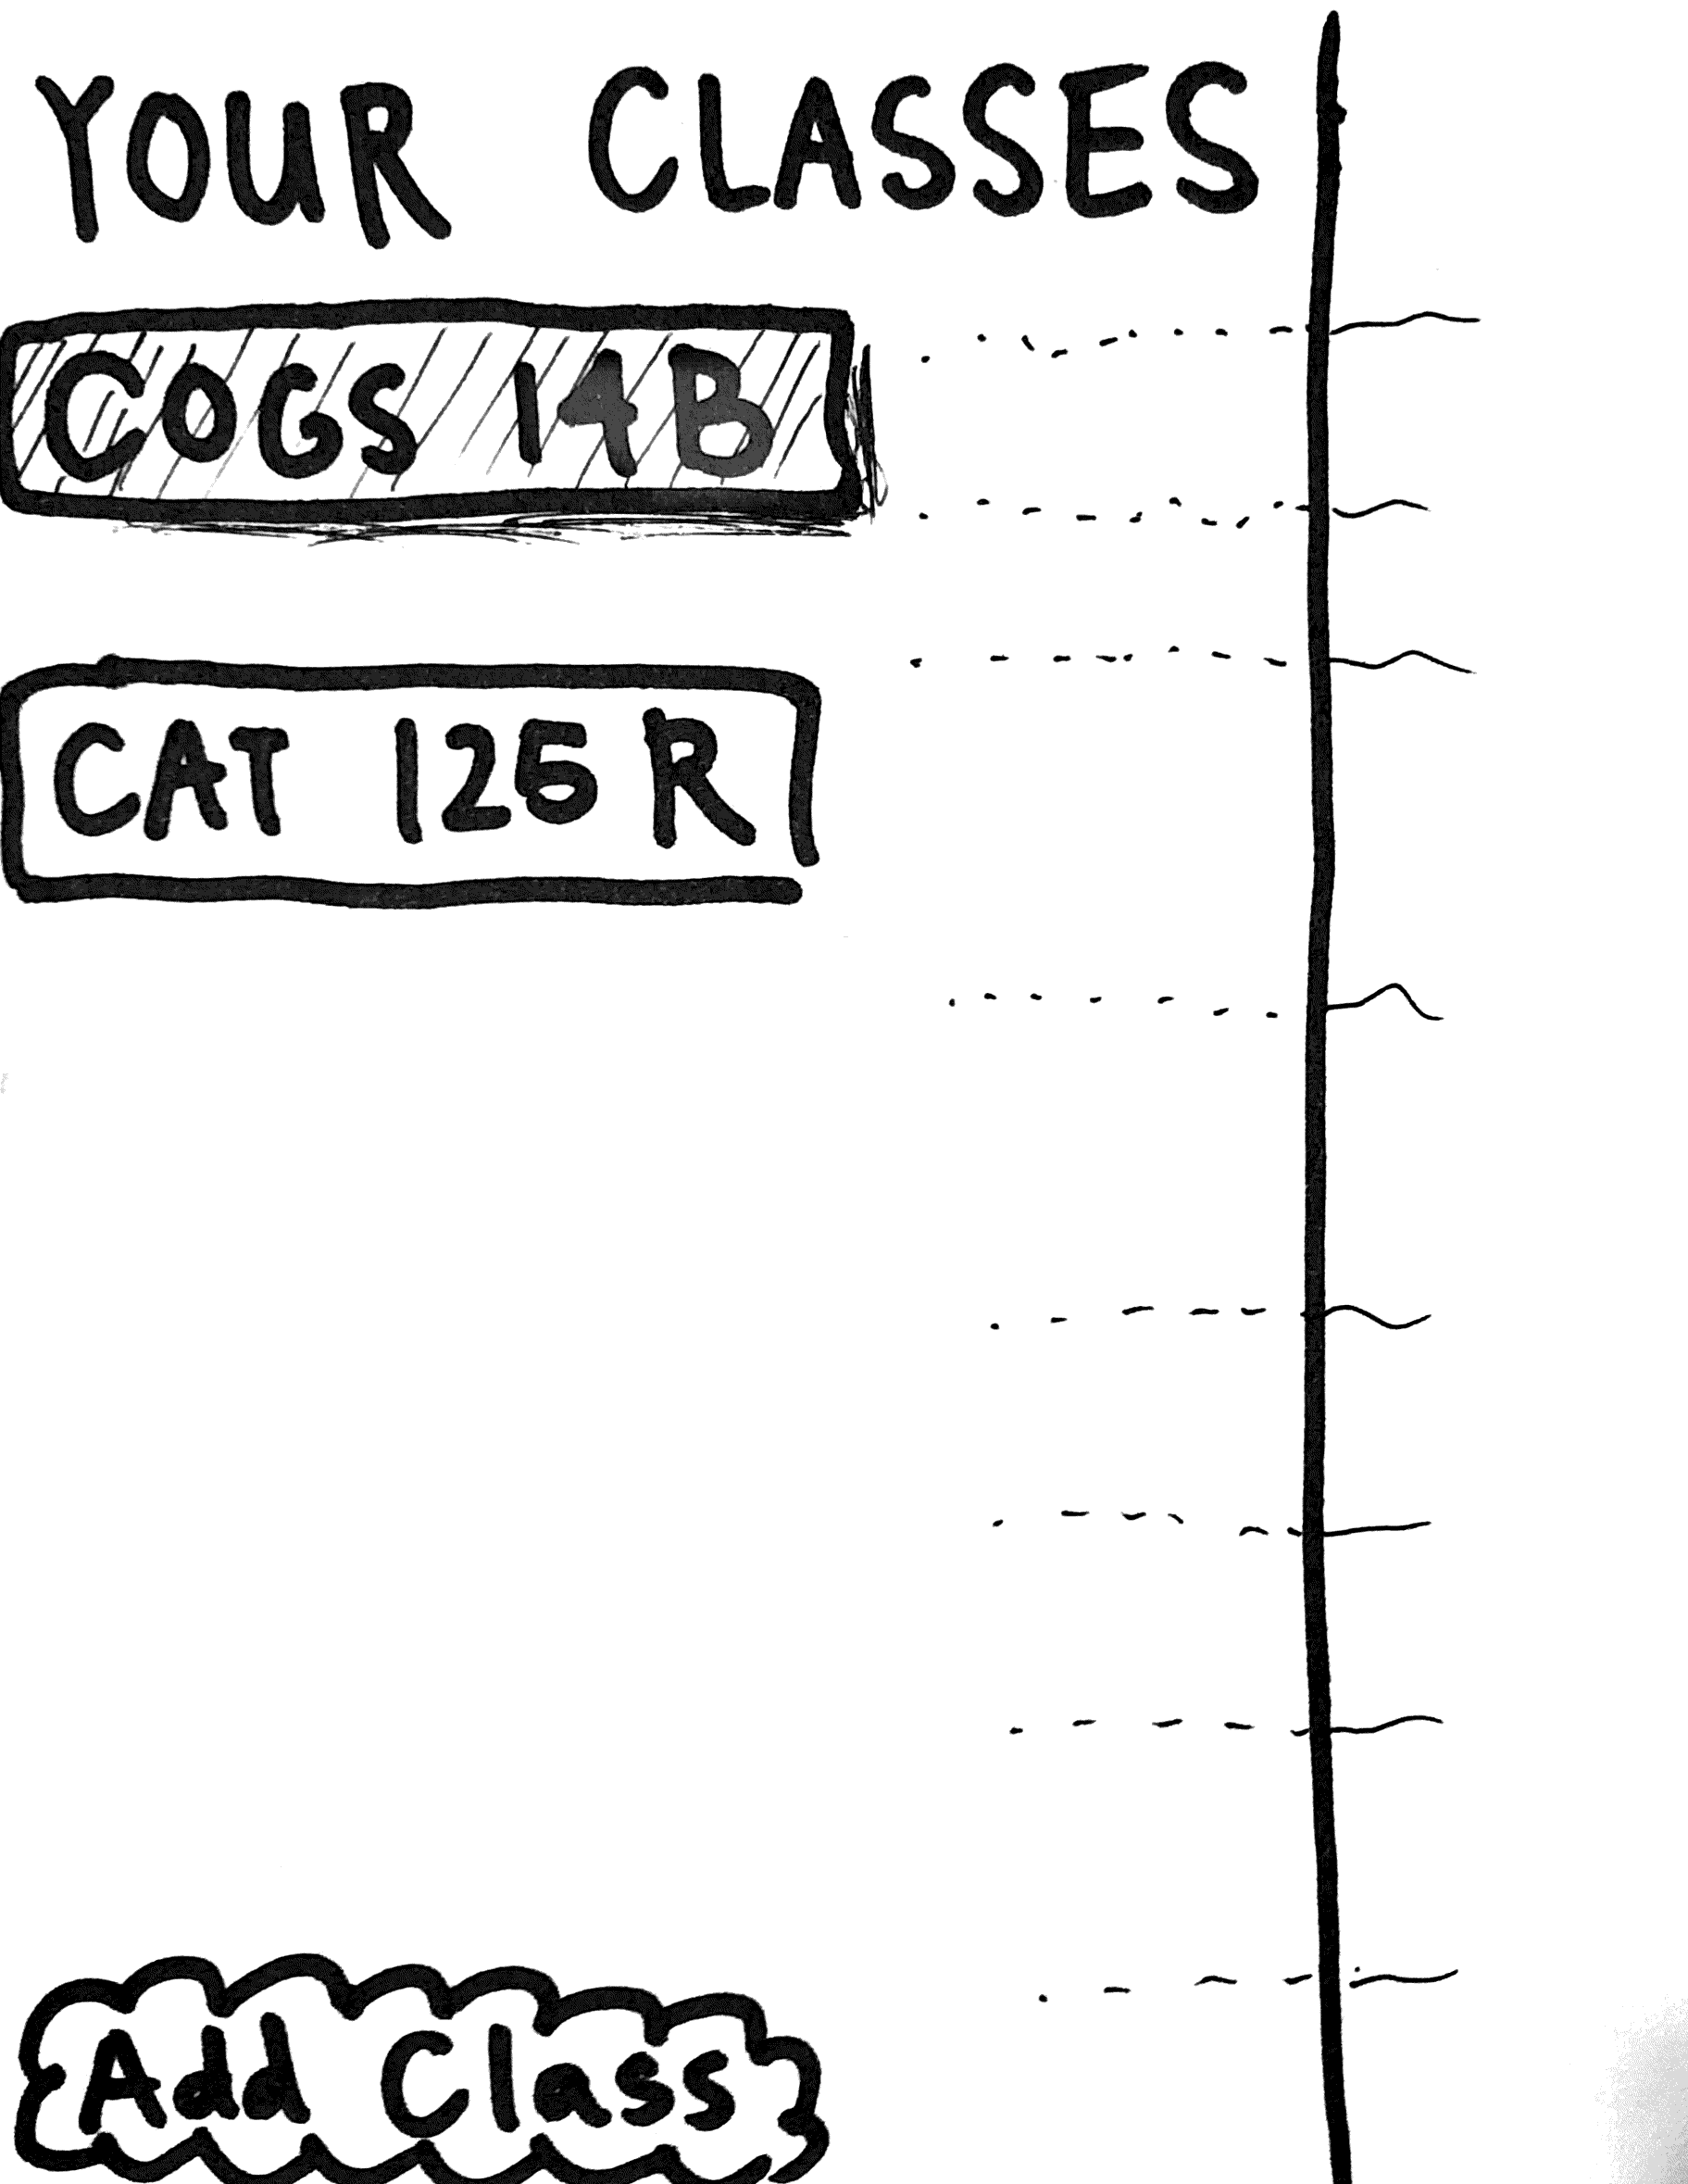 YOUR CLASSES
COGS 14B
CAT 125 R
Add Class